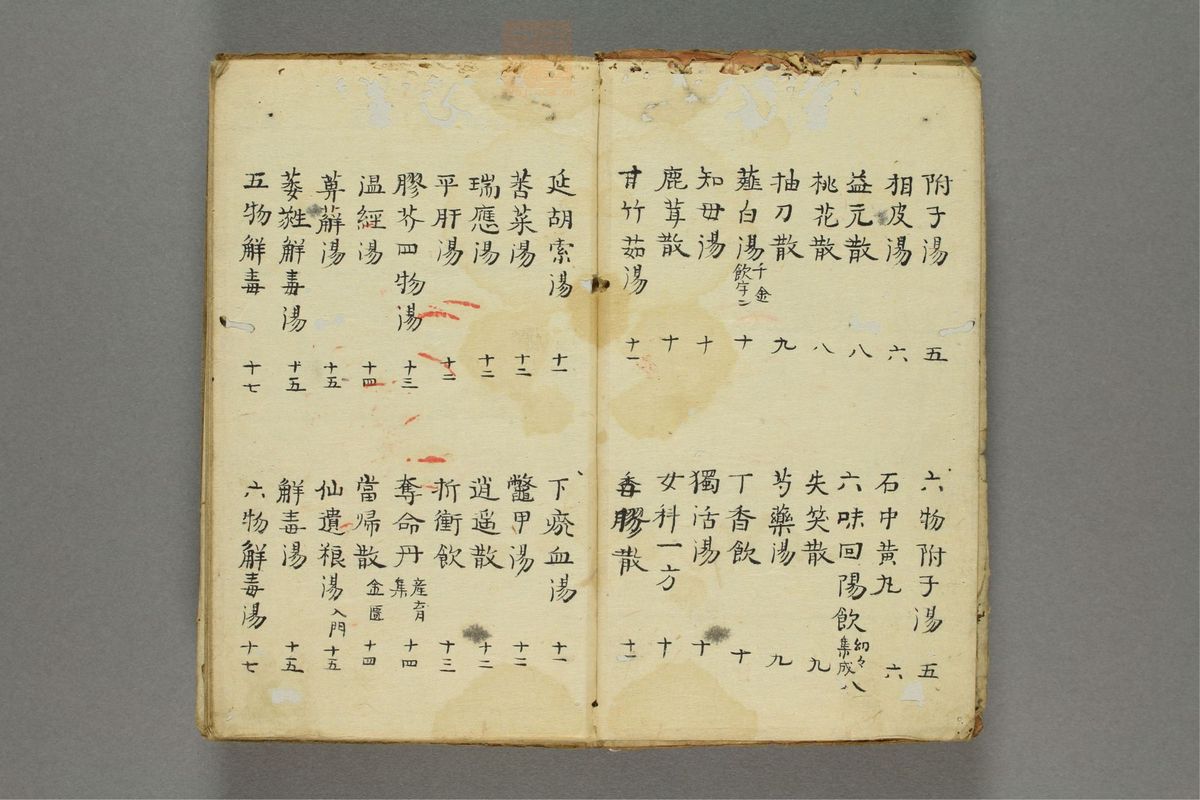 附子湯 五 六物附子湯 五
相皮湯 六 石中黄丸 六
益元散 八 六味回陽飲 幼々集成 八
桃花散 八 失笑散 九
抽刀散 九 芍藥湯 九
薤白湯 千金飲字ニ 十 丁香飲 十
知毋湯 十 獨活湯 十
鹿茸散 十 女科一方 十
甘竹茹湯 十一 香膠散 十一
延胡索湯 十一 下瘀血湯 十一
莕菜湯 十二 鼈甲湯 十二
瑞應湯 十二 逍遥散 十二
平肝湯 十二 折衝飲 十三
膠芥四物湯 十三 奪命丹 産育集 十四
温經湯 十四 當帰散 金匱 十四
萆薢湯 十五 仙遺粮湯 入門 十五
萎蕤解毒湯 十五 解毒湯 十五
五物解毒 十七 六物解毒湯 十七